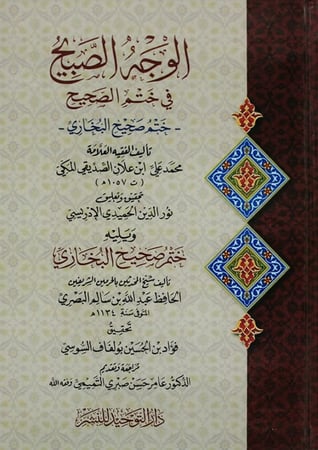 الوجه الصبيح
في ختم الصحيح
- ختم صحيح البخاري -
تأليف الفقيه العلامة
محمد علي ابن علان الصديقي المكي
( ت ١٠٥٧ ه )
تحقيق وتعليق
نور الدين الحميدي الإدريسي
ويليه
ختم صحيح البخاري
تأليف شيخ المحدثين بالحرمين الشريفين
الحافظ عبد الله بن سالم البصري
المتوفى سنة ١١٣٤ ه
تحقيق
فؤاد بن الحسين بولفاف السوسي
مراجعة وتقديم
الدكتور عامر حسن صبري التميمي وفقه الله
دار التوحيد للنشر